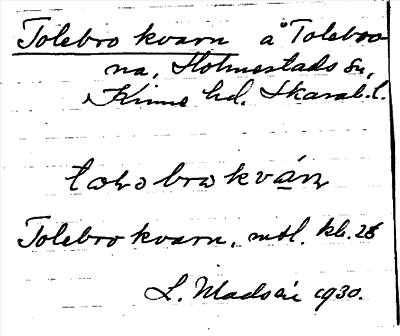 Tolebro kvarn å Tolebro
na, Holmestads sn,
Kinne hd. Skarab. l.
Tolebro kvarn, mtl. kb. 28
L. Madsén 1930.